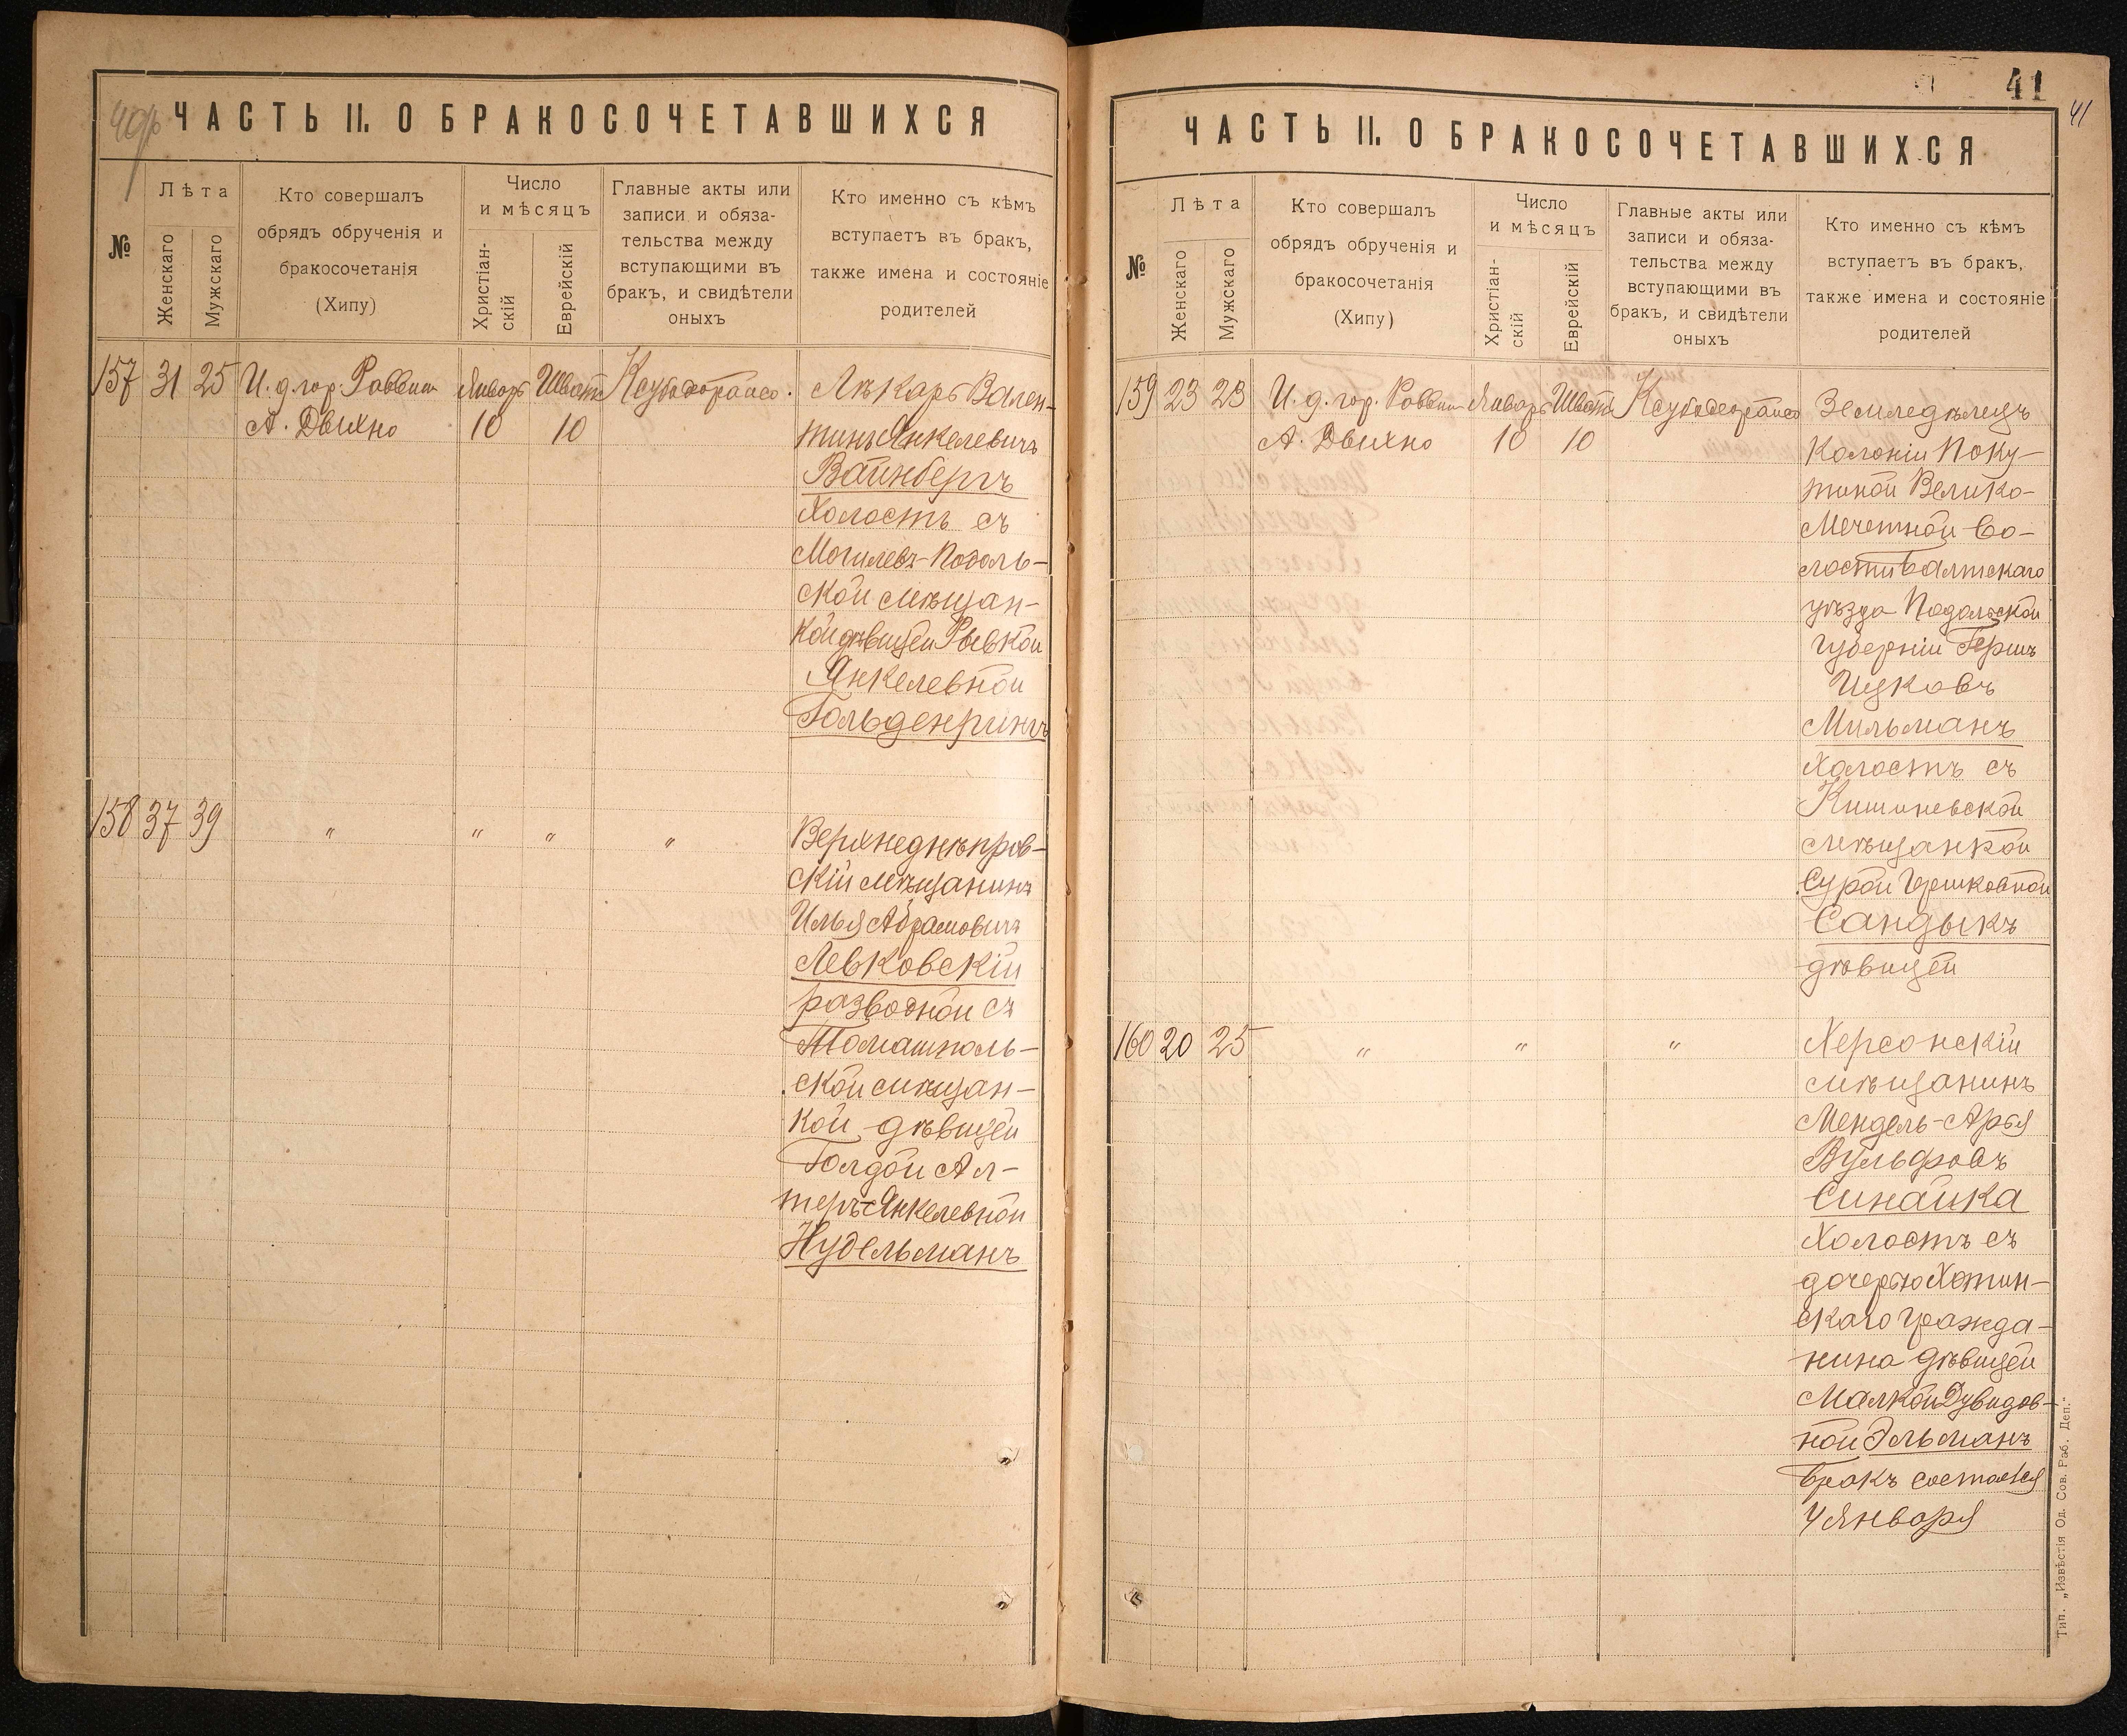 40об
ЧАСТЬ II. О БРАКОСОЧЕТАВШИХСЯ
№
Лѣта
Женскаго
Мужскаго
Кто совершалъ
обрядъ обрученія и
бракосочетанія
(Хипу)
Число
и мѣсяцъ
Христіан-
скій
Еврейскій
Главные акты или
записи и обяза-
тельства между
вступающими въ
бракъ, и свидѣтели
оныхъ
Кто именно съ кѣмъ
вступаетъ въ бракъ,
также имена и состояніе
родителей
157 31 25 И. д. гор. Раввин Январь Шват
А. Двихно 10 10
Лѣкарь Вален-
тинъ Янкелевичъ
Вайнбергъ
Холостъ съ
Могилевъ-Подоль-
ской мѣщан-
кой дѣвицей Рывкой
Янкелевной
Гольденрингъ
158 37 39 " " " "
Верхнеднѣпров-
скій мѣщанинъ
Илья Абрамовичъ
Левковскій
разводной съ
Томашполь-
ской мѣщан-
кой дѣвицей
Голдой Ал-
теръ-Янкелевной
Нудельманъ
41
41
ЧАСТЬ II. О БРАКОСОЧЕТАВШИХСЯ
№
Лѣта
Женскаго
Мужскаго
Кто совершалъ
обрядъ обрученія и
бракосочетанія
(Хипу)
Число
и мѣсяцъ
Христіан-
скій
Еврейскій
Главные акты или
записи и обяза-
тельства между
вступающими въ
бракъ, и свидѣтели
оныхъ
Кто именно съ кѣмъ
вступаетъ въ бракъ,
также имена и состояніе
родителей
159 23 23 И. д. гор. Раввин Январь Шват
А. Двихно 10 10
Земледѣлецъ
Колоніи Поку-
тиной Велико-
Мечетной Во-
лости Балтскаго
уѣзда Подольской
Губерніи Гершъ
Ицковъ
Мильманъ
Холостъ съ
Кишиневской
мѣщанкой
Сурой Гершковной
Сандыкъ
дѣвицей
160 20 25 " " "
Херсонскій
мѣщанинъ
Мендель-Арья
Вульфовъ
Синайка
Холостъ съ
дочерью Хотин-
скаго гражда-
нина дѣвицей
Малкой Дувидов-
ной Эльманъ
Бракъ состоялся
4 Января
Тип. „Извѣстія Од. Сов. Раб. Деп."